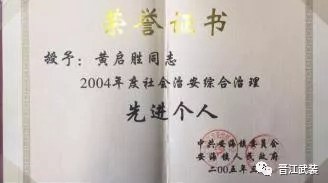 荣誉证书
授予：黄启胜同志
2004年度社会治安综合治理
先进个人
中共安海镇委员会
安海镇人民政府
二00五年
晋江武装